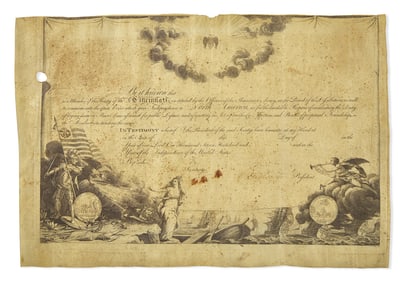 Be it known that
is a Member of the Society of the Cincinnati; instituted by the Officers of the American Army, at the Period of its Dissolution, as well
to commemorate the great Event which gave Independence to North America, as for the laudable Purpose of inculcating the Duty
of laying down in Peace Arms assumed for public Defence, and of uniting in Acts of brotherly Affection, and Bonds of perpetual Friendship,
the Members constituting the same.
In Testimony whereof I, the President of the said Society, have hereunto set my Hand
at in the State of this Day of in the
Year of our Lord One Thousand Seven Hundred and and in the
Year of the Independence of the United States.
By order,
Secretary.
President.